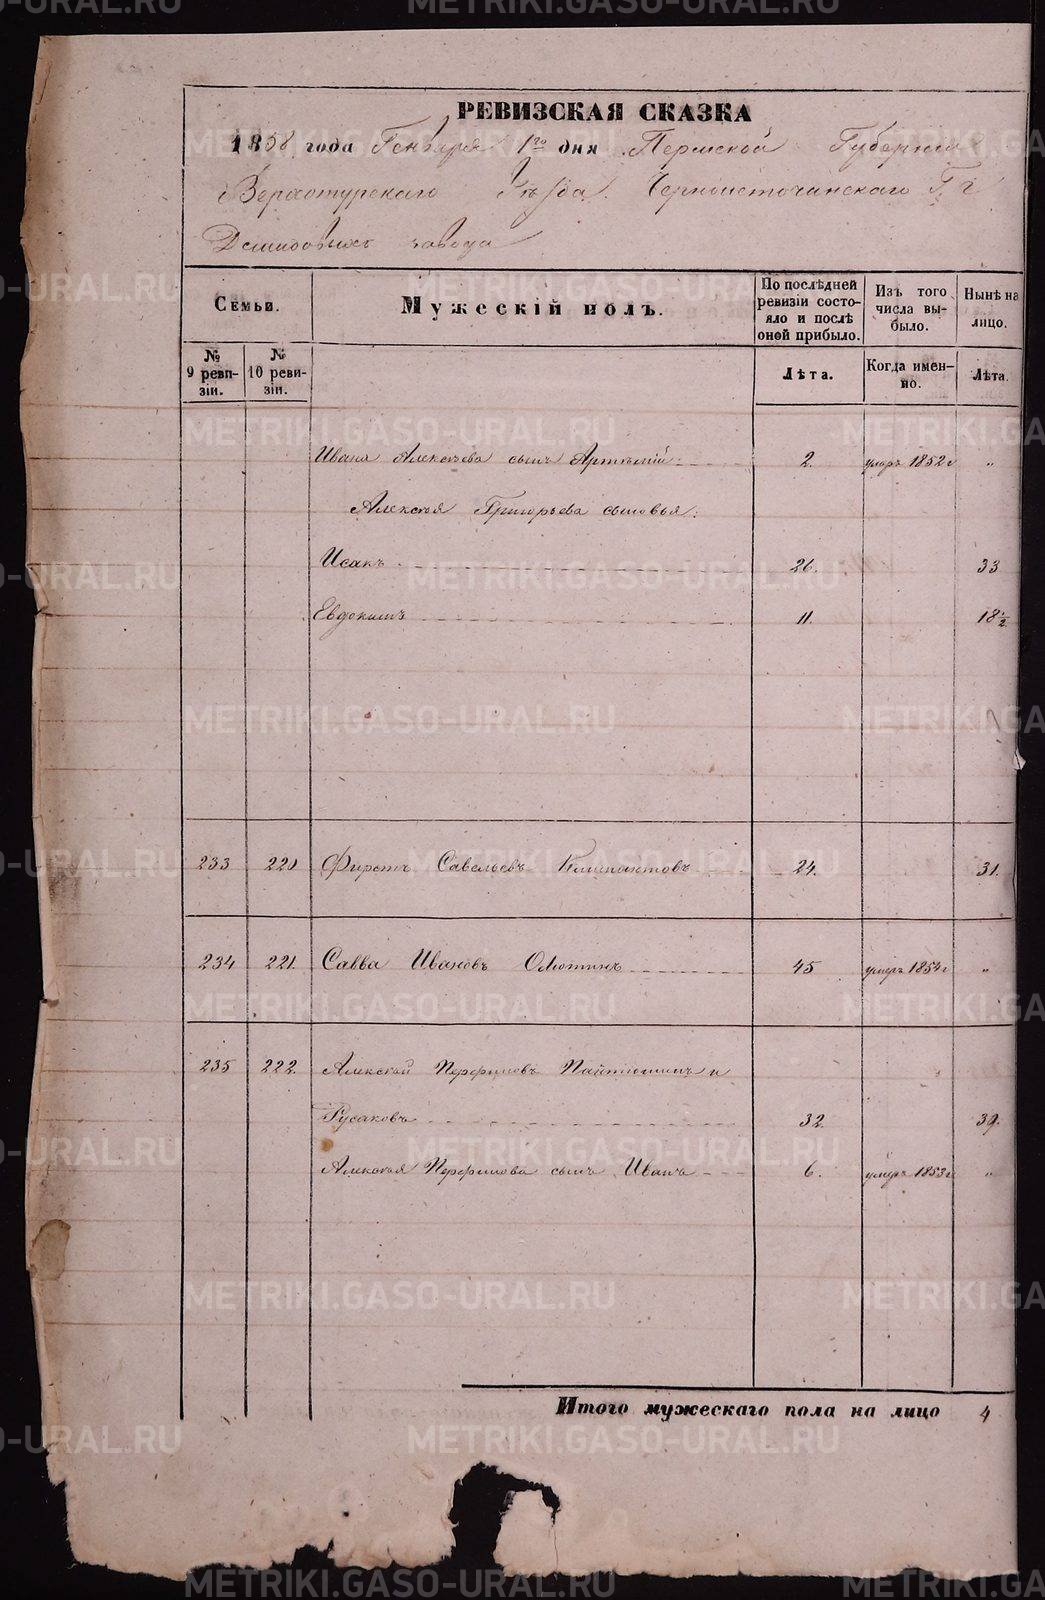 РЕВИЗСКАЯ СКАЗКА
1858 года Генваря 1го дня Пермской Губернии
Верхотурскаго Уѣзда Черноисточинскаго Г г
Демидовыхъ завода
Семьи.
Мужескій полъ.
По послѣдней ревизіи состояло и послѣ оной прибыло.
Изъ того числа выбыло.
Нынѣ на лицо.
№ 9 ревизіи.
№ 10 ревизіи.
Лѣта.
Когда именно.
Лѣта.
Ивана Алексѣева сынъ Артемій 2. умеръ 1852 г "
Алексѣя Григорьева сыновья:
Исакъ 26. 33
Евдокимъ 11. 18 1/2
233 220 Фирсъ Савельевъ 24. 31.
234 221. Савва Ивановъ 45 умеръ 1854 г "
235 222. Алексѣй Перфиловъ и
Русаковъ 32. 39.
Алексѣя Перфилова сынъ Иванъ 6. умеръ 1853 г "
Итого мужескаго пола на лицо 4
METRIKI.GASO-URAL.RU